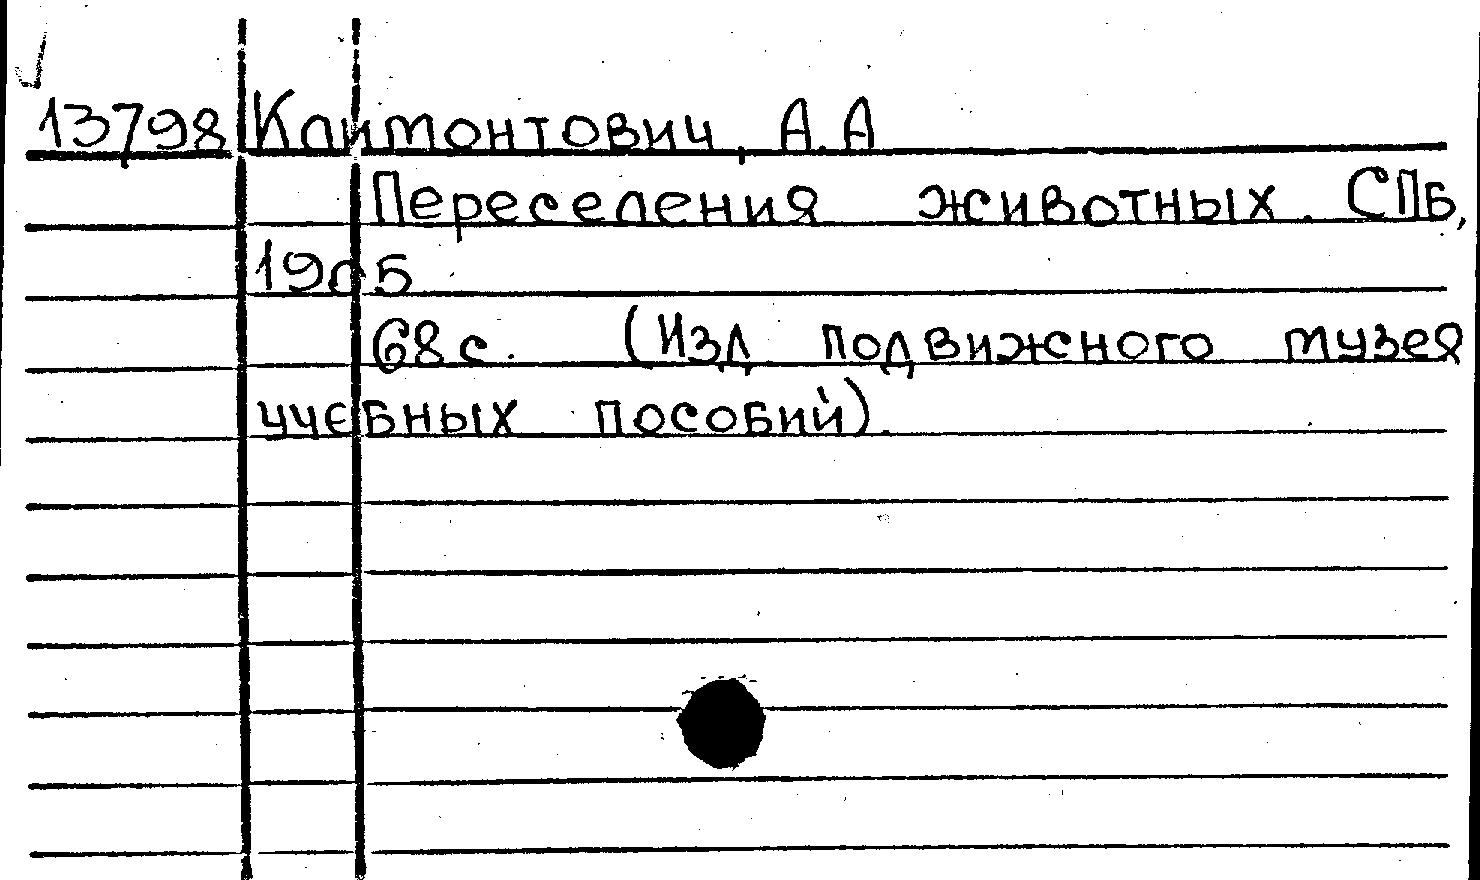 13798 Климонтович, А.А
Переселения животных. СПб,
1905
68 с. (Изд подвижного музея
учебных пособий).